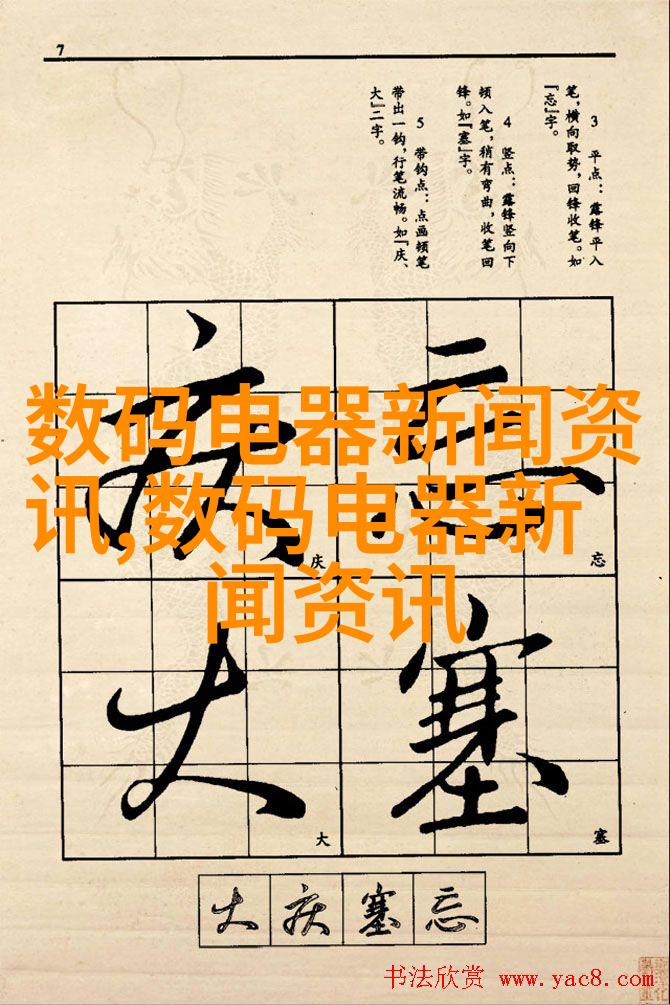 7
3 平点：露锋平入
笔，横向取势，回锋收笔。如
『忘』字。
4 竖点：露锋竖向下
顿入笔，稍有弯曲，收笔回
锋。如『塞』字。
5 带钩点：点画顿笔
带出一钩，行笔流畅。如『庆、
大』二字。
数码电器新闻资
讯,数码电器新
闻资讯
庆 忘
庆 忘
大 塞
大 塞
大 庆 塞 忘
书法欣赏 www.yac8.com